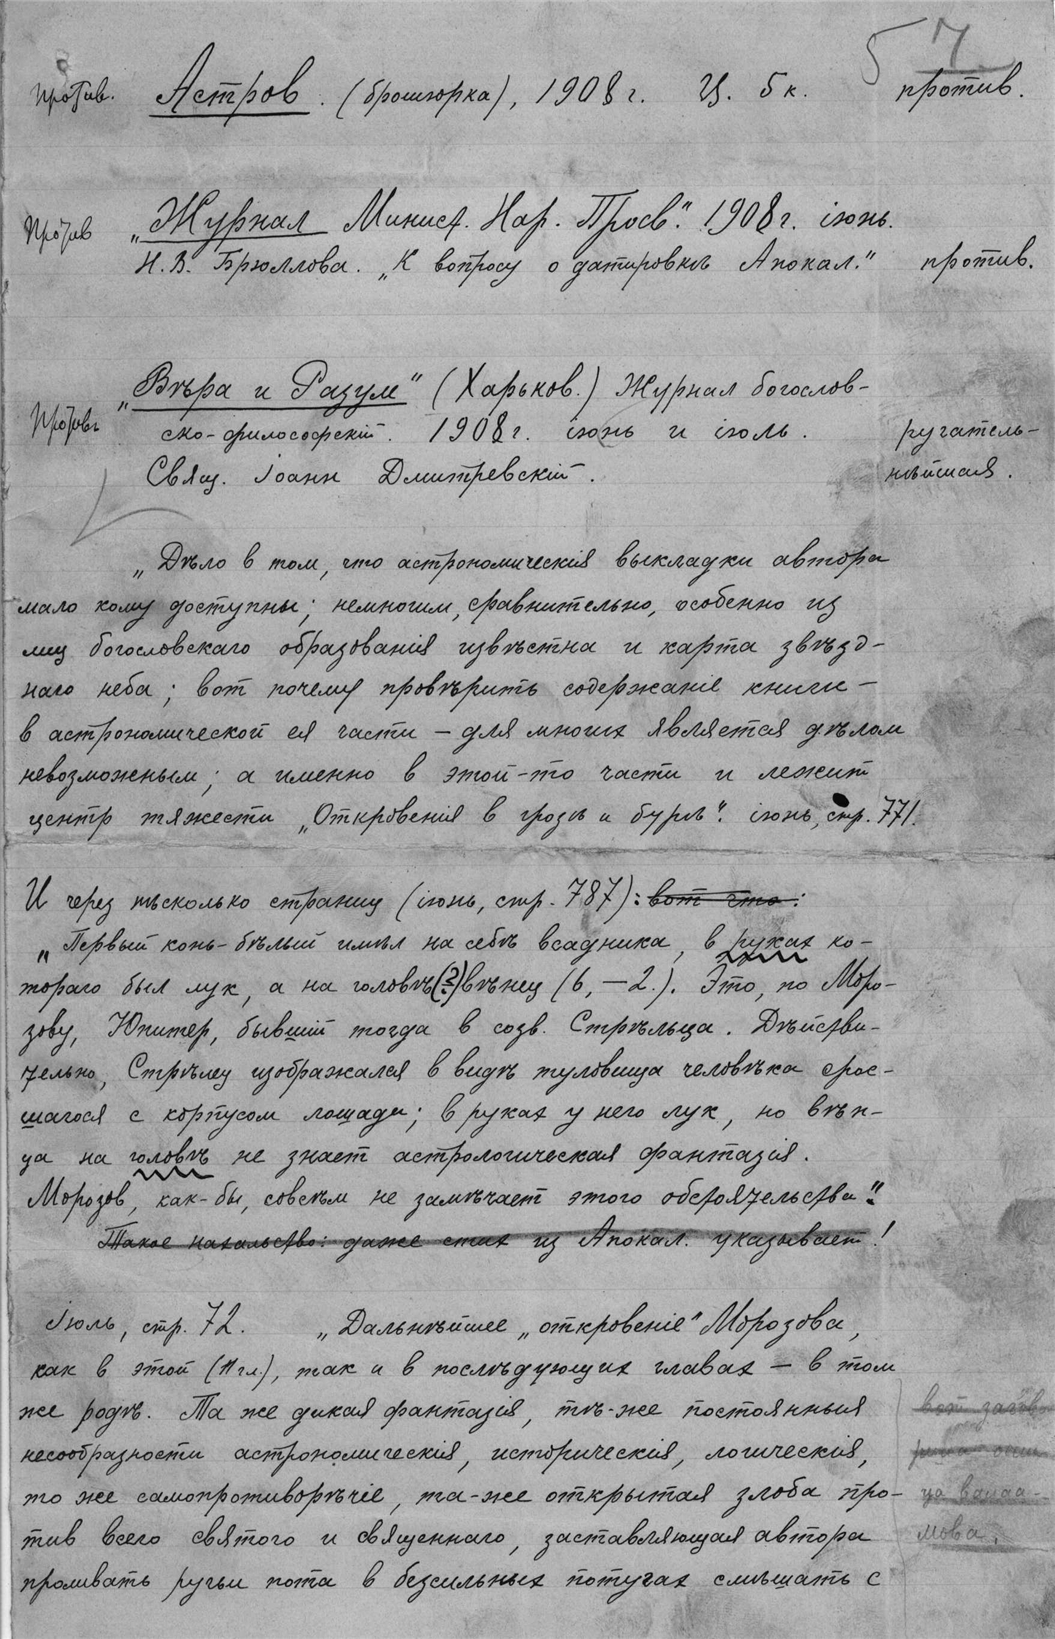 57
против. Астров. (брошюрка), 1908 г. Ц. 5 к. против.
Против „Журнал Минист. Нар. Просв." 1908 г. iюнь.
Н. В. Брюллова. „К вопросу о датировкѣ Апокал." против.
„Вѣра и Разум" (Харьков.) Журнал богослов-
Против ско-философскiй. 1908 г. iюнь и iюль. ругатель-
Свящ. Iоанн Дмитревскiй. нѣйшая.
„Дѣло в том, что астрономическiя выкладки автора
мало кому доступны; немногим, сравнительно, особенно из
лиц богословскаго образованiя извѣстна и карта звѣзд-
наго неба; вот почему провѣрить содержанiе книги –
в астрономической ея части – для многих является дѣлом
невозможным; а именно в этой-то части и лежит
центр тяжести „Откровенiя в грозѣ и бурѣ". iюнь, стр. 771.
И через нѣсколько страниц (iюнь, стр. 787): вот что:
„Первый конь-бѣлый имѣл на себѣ всадника, в руках ко-
тораго был лук, а на головѣ (?) вѣнец (6, – 2.). Это, по Моро-
зову, Юпитер, бывшiй тогда в созв. Стрѣльца. Дѣйстви-
тельно, Стрѣлец изображался в видѣ туловища человѣка срос-
шагося с корпусом лошади; в руках у него лук, но вѣн-
ца на головѣ не знает астрологическая фантазiя.
Морозов, как-бы, совсѣм не замѣчает этого обстоятельства".
Такое нахальство: даже стих из Апокал. указывает!
Iюль, стр. 72. „Дальнѣйшее „откровенiе" Морозова,
как в этой (11 гл.), так и в послѣдующих главах – в том
же родѣ. Та же дикая фантазiя, тѣ-же постоянныя
несообразности астрономическiя, историческiя, логическiя,
то же самопротиворѣчiе, та-же открытая злоба про-
тив всего святого и священнаго, заставляющая автора
проливать ручьи пота в безсильных потугах смѣшать с
вот загов
ца валаа-
мова.